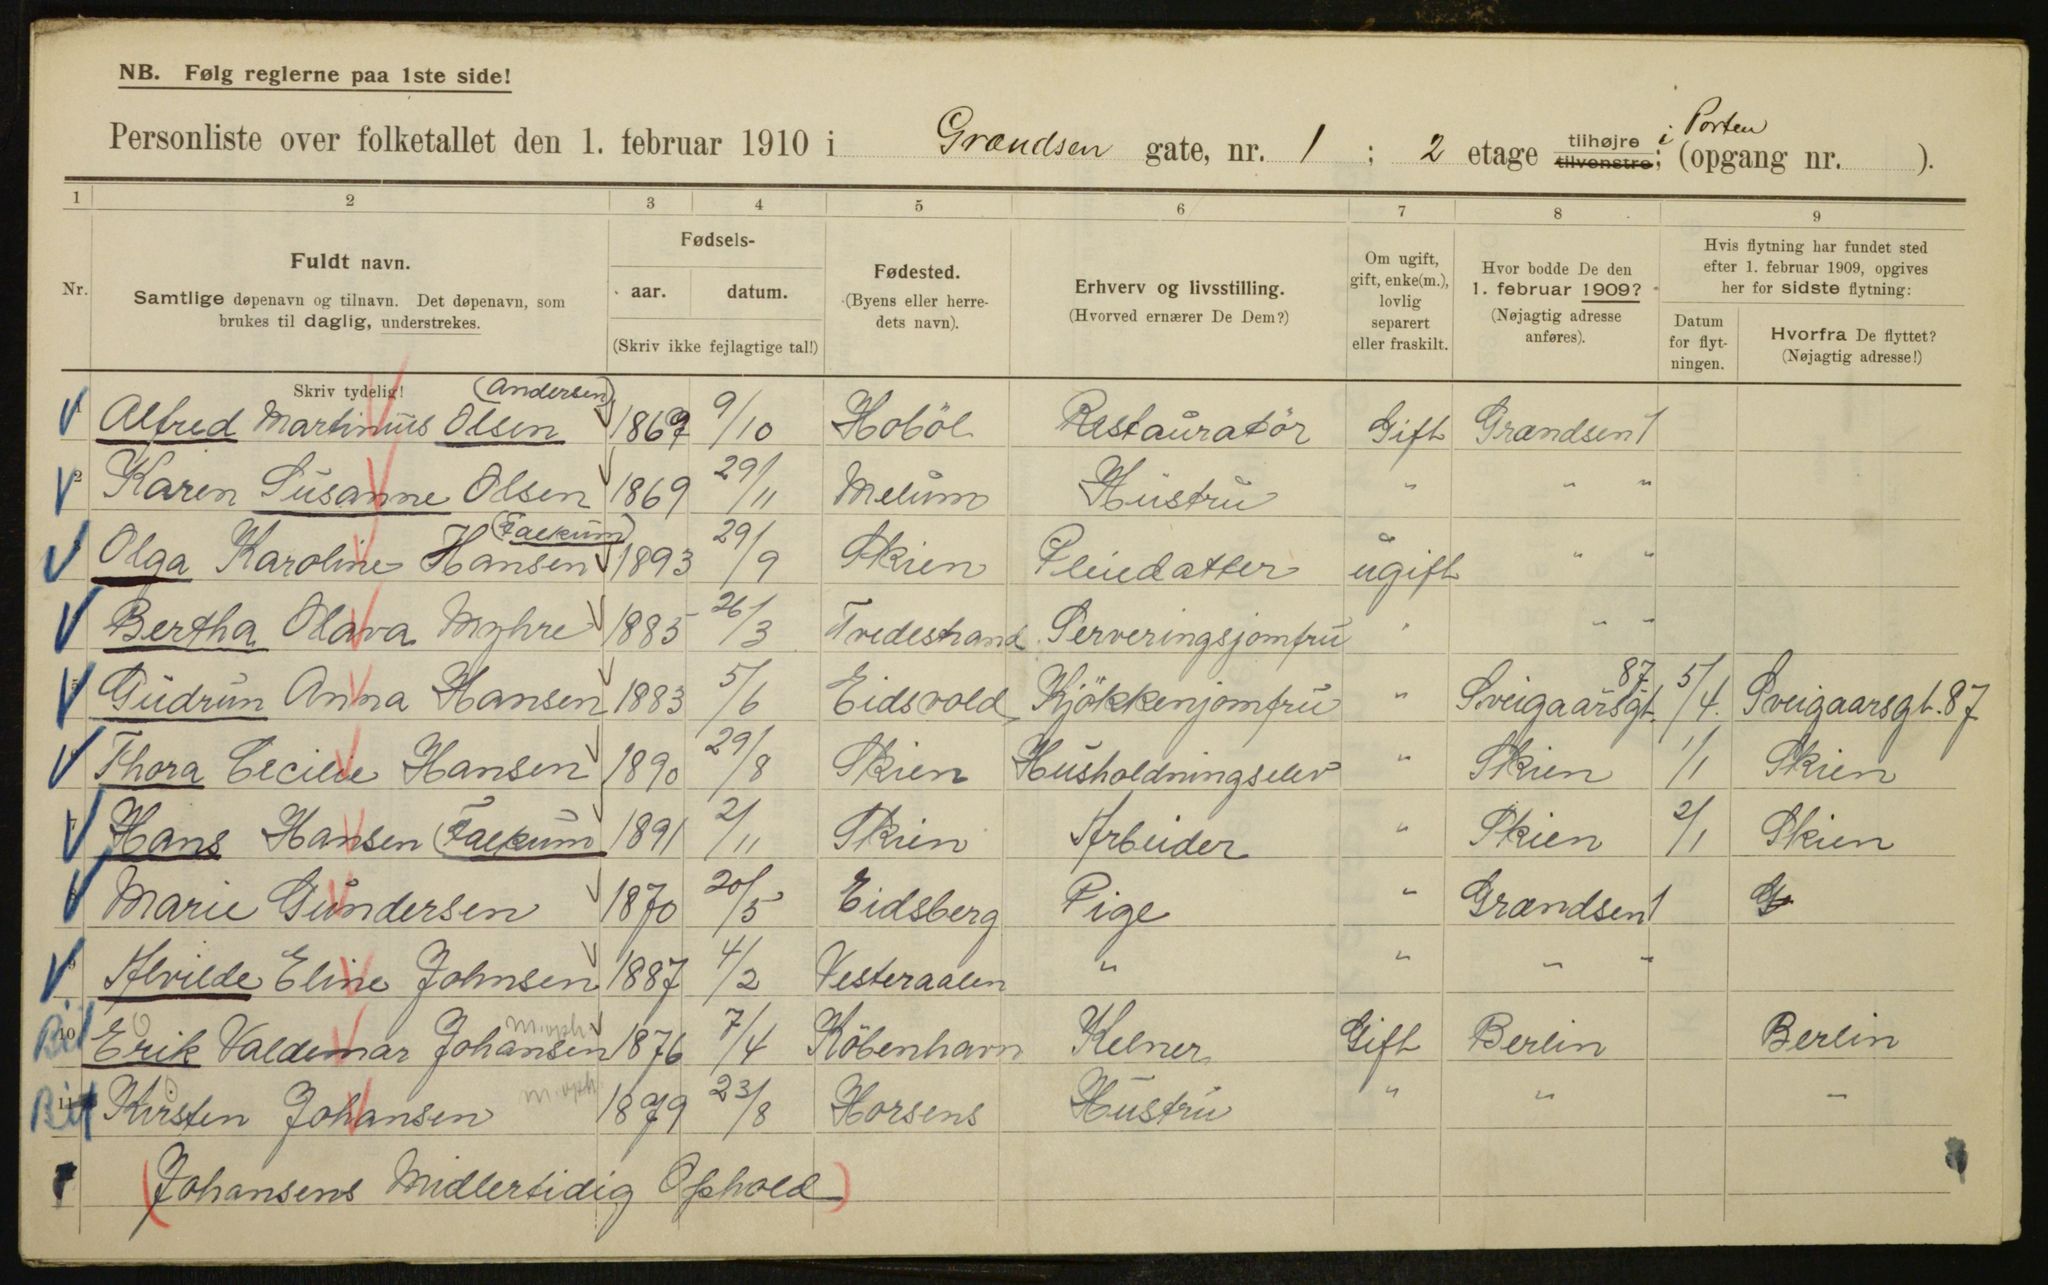 NB. Følg reglerne paa 1ste side!
Personliste over folketallet den 1. februar 1910 i Grændsen gate, nr. 1 ; 2 etage tilhøjre tilvenstre; i Porten (opgang nr. ).
1 2 3 4 5 6 7 8 9
Nr.
Fuldt navn.
Samtlige døpenavn og tilnavn. Det døpenavn, som
brukes til daglig, understrekes.
Skriv tydelig!
Fødsels-
aar. datum.
(Skriv ikke fejlagtige tal!)
Fødested.
(Byens eller herre-
dets navn).
Erhverv og livsstilling.
(Hvorved ernærer De Dem?)
Om ugift,
gift, enke(m.),
lovlig
separert
eller fraskilt.
Hvor bodde De den
1. februar 1909?
(Nøjagtig adresse
anføres).
Hvis flytning har fundet sted
efter 1. februar 1909, opgives
her for sidste flytning:
Datum
for flyt-
ningen.
Hvorfra De flyttet?
(Nøjagtig adresse!)
1 Alfred Martinius Olsen (Andersen) 1867 9/10 Hoböl Restauratör Gift Grændsen 1
2 Karen Susanne Olsen 1869 29/11 Melum Hustru " " "
3 Olga Karoline Hansen (Falkum) 1893 29/9 Skien Pleiedatter ugift " "
Bertha Olava Myhre 1885 26/3 Tvedestrand Serveringsjomfru " " "
5 Gudrun Anna Hansen 1883 5/6 Eidsvold Kjökkenjomfru " Sveigaarsgt. 87 5/4. Sveigaarsgt. 87
Thora Cecilie Hansen 1890 29/8 Skien Husholdningselev " Skien 1/1 Skien
7 Hans Hansen (Falkum 1891 2/11 Skien Arbeider " Skien 2/1 Skien
Marie Gundersen 1870 20/5 Eidsberg Pige " Grændsen 1 G
9 Alvilde Eline Johnsen 1887 4/2 Vesteraalen " " " "
10 Erik Valdemar Johansen 1876 7/4 Köbenhavn Kelner Gift Berlin Berlin
11 Kirsten Johansen 1879 23/8 Horsens Hustru " " "
(Johansens Midlertidig Ophold)